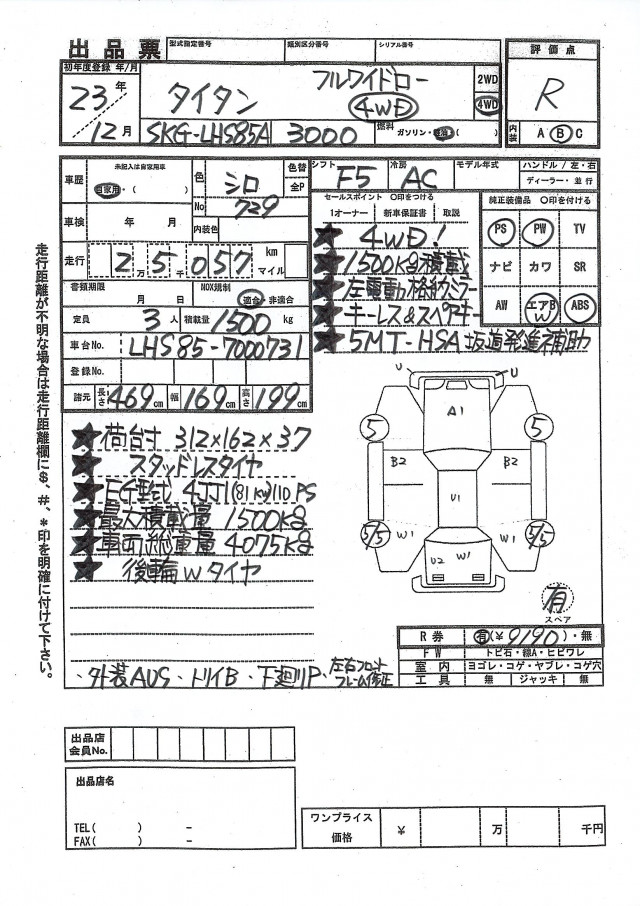 出品票
型式指定番号 類別区分番号 シリアル番号
評価点
初年度登録 年/月
23年
12月
フルワイドロー
タイタン 4WD
2WD
4WD
SKG-LHS85A 3000
燃料 ガソリン・軽油・( )
R
内装 A B C
車歴
未記入は自家用車
自家用・( )
色 シロ
色替
全P
No 729
内装色
車検 年 月
走行 2万5千057 km
マイル
書類期限 月 日
NOX規制 適合・非適合
定員 3人 積載量 1500 kg
車台No. LHS85-7000731
登録No.
諸元 長さ 469cm 幅 169cm 高さ 199cm
シフト F5 冷房 AC モデル年式
ハンドル / 左・右
ディーラー・並行
セールスポイント ○印をつける
1オーナー 新車保証書 取説
純正装備品 ○印を付ける
PS PW TV
ナビ カワ SR
AW エアB W ABS
★ 4WD!
★ 1500kg積載
★ 左電動格納ミラー
★ キーレス&スペアキー
★ 5MT-HSA坂道発進補助
★ 荷台寸 312×162×37
★ スタッドレスタイヤ
★ EG型式 4JJ1(81kw)110PS
★ 最大積載量 1500kg
★ 車両総重量 4075kg
★ 後輪Wタイヤ
U U
A1
5 5
B2 B2
U1
5/5 W1 W1 5/5
U2 W1
有
スペア
R券 有(¥9190)・無
FW トビ石・線A・ヒビワレ
室内 ヨゴレ・コゲ・ヤブレ・コゲ穴
工具 無 ジャッキ 無
・外装AUS ・トリイB ・下廻リP ・左右フロント
フレーム修正
走行距離が不明な場合は走行距離欄に$、#、*印を明確に付けて下さい。
出品店
会員No.
出品店名
TEL( ) -
FAX( ) -
ワンプライス
価格
¥ 万 千円